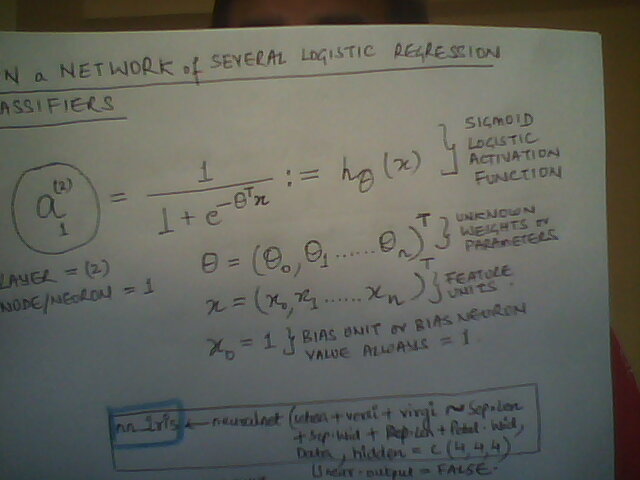 N a NETWORK of SEVERAL LOGISTIC REGRESSION
ASSIFIERS
a₁⁽²⁾ = 1 / (1 + e^(-θᵀx)) := h_θ(x) } SIGMOID
LOGISTIC
ACTIVATION
FUNCTION
LAYER = (2)
NODE/NEURON = 1
θ = (θ₀, θ₁ ...... θₙ)ᵀ } UNKNOWN
WEIGHTS or
PARAMETERS
x = (x₀, x₁ ...... xₙ)ᵀ } FEATURE
UNITS.
x₀ = 1 } BIAS UNIT or BIAS NEURON
VALUE ALWAYS = 1.
nn_iris ← neuralnet (setosa + versi + virgi ~ Sep.Len
+ Sep.Wid + Pep.Len + Petal.Wid,
Data, hidden = c(4,4,4),
linear.output = FALSE.